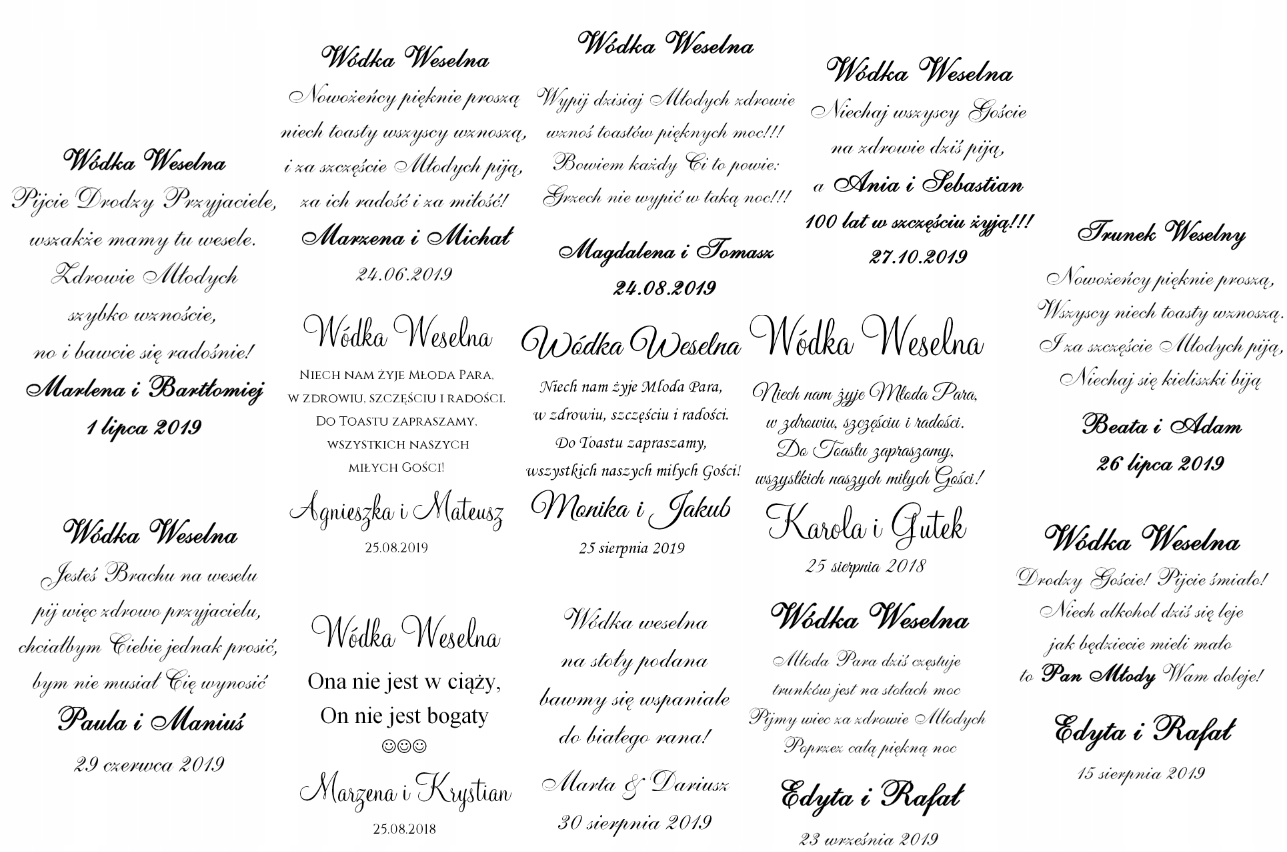 Wódka Weselna
Pijcie Drodzy Przyjaciele,
wszakże mamy tu wesele.
Zdrowie Młodych
szybko wznoście,
no i bawcie się radośnie!
Marlena i Barttomiej
1 lipca 2019
Wódka Weselna
Jesteś Brachu na weselu
pij więc zdrowo przyjacielu,
chciałbym Ciebie jednak prosić,
bym nie musiał Cię wynosić
Paula i Maniuś
29 czerwca 2019
Wódka Weselna
Nowożeńcy pięknie proszą
niech toasty wszyscy wznoszą,
i za szczęście Młodych piją,
za ich radość i za miłość!
Marzena i Michał
24.06.2019
Wódka Weselna
Niech nam żyje Młoda Para,
w zdrowiu, szczęściu i radości.
Do Toastu zapraszamy,
wszystkich naszych
miłych Gości!
Agnieszka i Mateusz
25.08.2019
Wódka Weselna
Ona nie jest w ciąży,
On nie jest bogaty
☺☺☺
Marzena i Krystian
25.08.2018
Wódka Weselna
Wypij dzisiaj Młodych zdrowie
wznoś toastów pięknych moc!!!
Bowiem każdy Ci to powie:
Grzech nie wypić w taką noc!!!
Magdalena i Tomasz
24.08.2019
Wódka Weselna
Niech nam żyje Młoda Para,
w zdrowiu, szczęściu i radości.
Do Toastu zapraszamy,
wszystkich naszych miłych Gości!
Monika i Jakub
25 sierpnia 2019
Wódka weselna
na stoły podana
bawmy się wspaniale
do białego rana!
Marta & Dariusz
30 sierpnia 2019
Wódka Weselna
Niechaj wszyscy Goście
na zdrowie dziś piją,
a Ania i Sebastian
100 lat w szczęściu żyją!!!
27.10.2019
Wódka Weselna
Niech nam żyje Młoda Para,
w zdrowiu, szczęściu i radości.
Do Toastu zapraszamy,
wszystkich naszych miłych Gości!
Karola i Gutek
25 sierpnia 2018
Wódka Weselna
Młoda Para dziś częstuje
trunków jest na stołach moc
Pijmy wiec za zdrowie Młodych
Poprzez całą piękną noc
Edyta i Rafał
23 września 2019
Trunek Weselny
Nowożeńcy pięknie proszą,
Wszyscy niech toasty wznoszą.
I za szczęście Młodych piją,
Niechaj się kieliszki biją
Beata i Adam
26 lipca 2019
Wódka Weselna
Drodzy Goście! Pijcie śmiało!
Niech alkohol dziś się leje
jak będziecie mieli mało
to Pan Młody Wam doleje!
Edyta i Rafał
15 sierpnia 2019